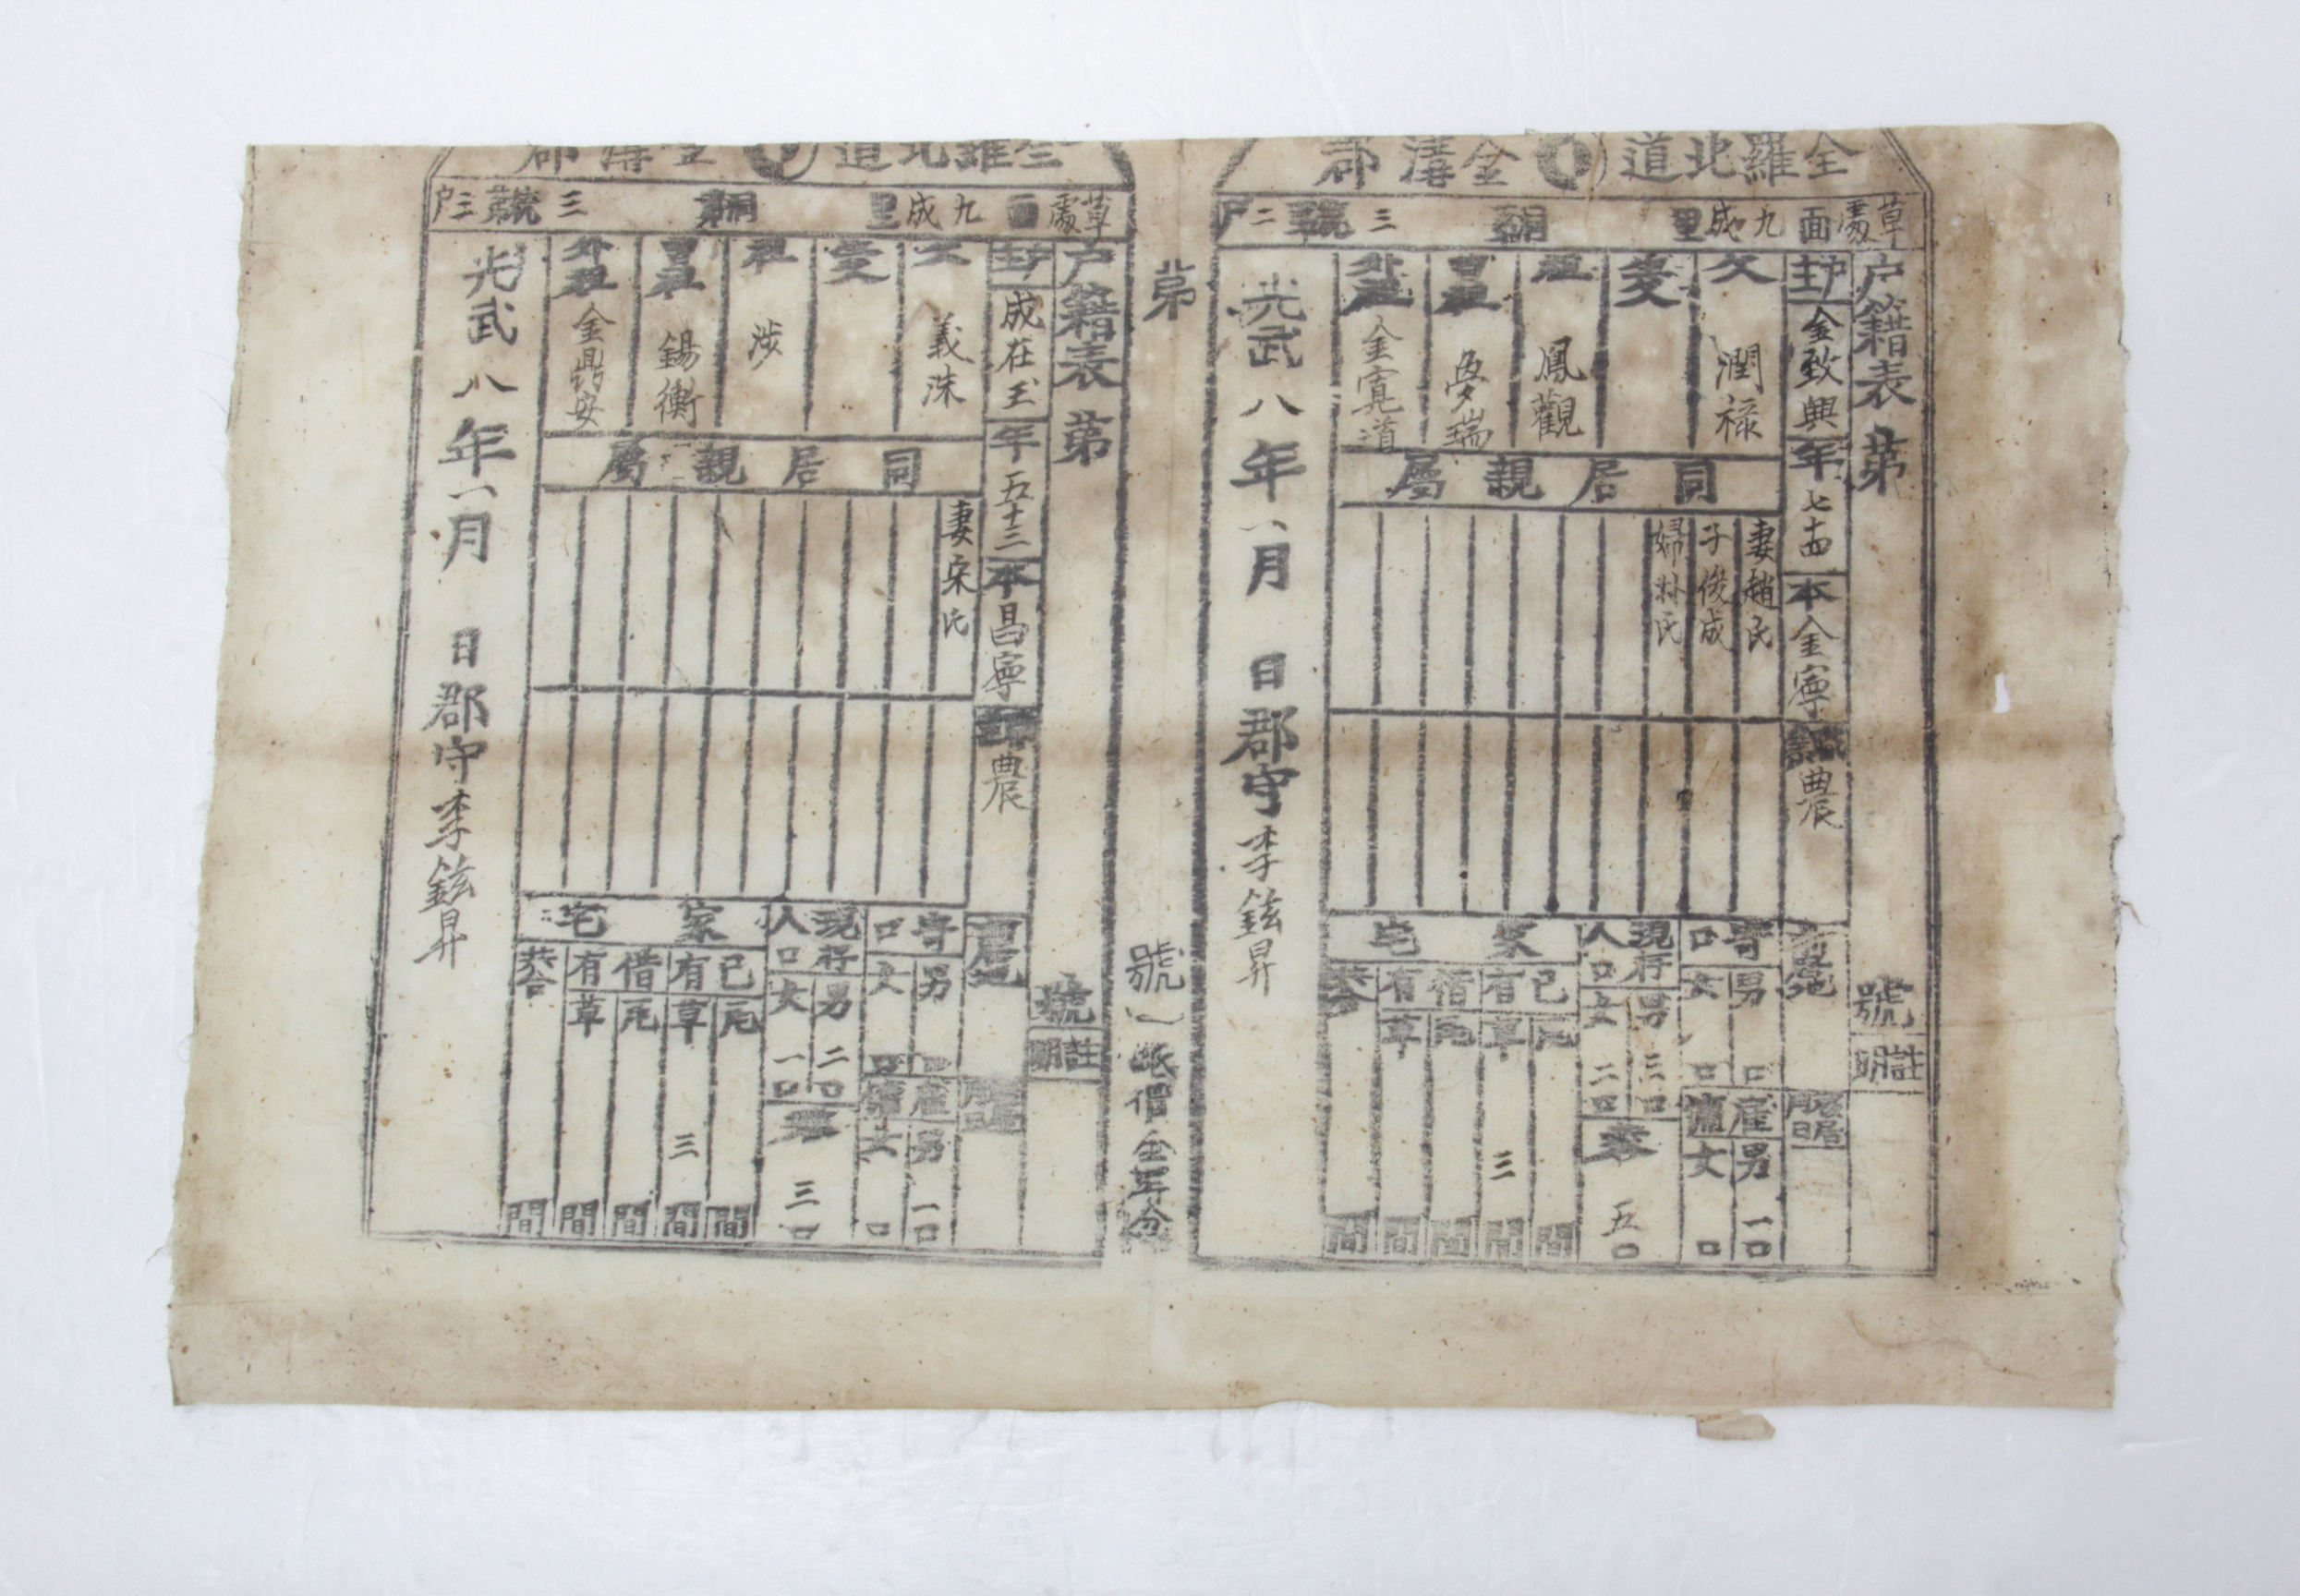 全羅北道 金溝郡
草處面 九成里 洞 三 統 二 戶
戶籍表 第 號
註明
戶主 金致興 年 七十四 本 金寧 職 農
父 潤祿
祖 鳳觀
曾祖 夢瑞
外祖 金寬道
同居親屬
妻趙氏
子俊成
婦林氏
寄口 男 口 女 口
雇傭 男 一口 女 口
現存人口 男 三口 女 二口
五口
家宅
己有 瓦 間 草 三 間
借有 瓦 間 草 間
間
光武八年一月 日 郡守 李鉉昇
第 號
全羅北道 金溝郡
草處面 九成里 洞 三 統 三 戶
戶籍表 第 號
註明
戶主 成在玉 年 五十三 本 昌寧 農
父 義洙
祖 涉
曾祖 錫衡
外祖 金鼎安
同居親屬
妻宋氏
寄口 男 口 女 口
雇傭 男 一口 女 口
現存人口 男 二口 女 一口
三口
家宅
己有 瓦 間 草 三 間
借有 瓦 間 草 間
間
光武八年一月 日 郡守 李鉉昇